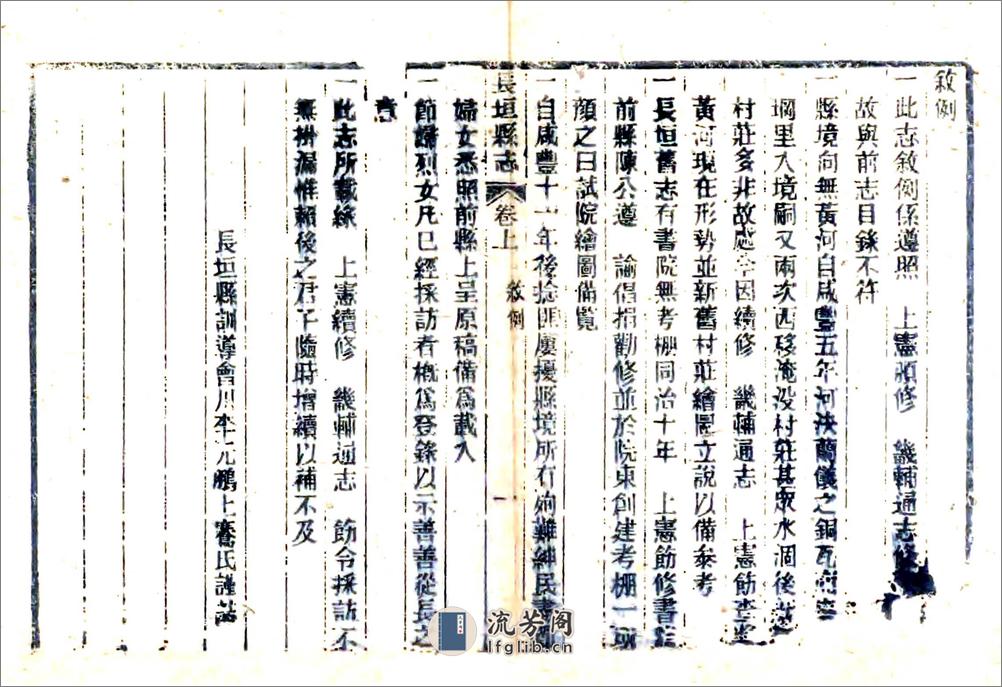 敘例
一此志敘例係遵照　上憲頒修　畿輔通志修
故與前志目錄不符
一縣境向無黃河自咸豐五年河決蘭儀之銅瓦
堈里入境嗣又兩次西移淹没村莊甚眾水涸後
村莊多非故處今因續修　畿輔通志　上憲飭查
黃河現在形勢並新舊村莊繪圖立說以備參考
一長垣舊志有書院無考棚同治十年　上憲飭修書院
前縣陳公遵　諭倡捐勸修並於院東創建考棚一
顏之曰試院繪圖備覽
一自咸豐十一年後捻匪屢擾縣境所有殉難紳民
長垣縣志　卷上　敘例　一
婦女悉照前縣上呈原稿備為載入
一節婦烈女凡已經採訪者概為登錄以示善善從長之
意
一此志所載係　上憲續修　畿輔通志　飭令採訪不
無掛漏惟賴後之君子隨時增續以補不及
長垣縣訓導會川李元鵬上騫氏謹
流芳阁
lfglib.cn